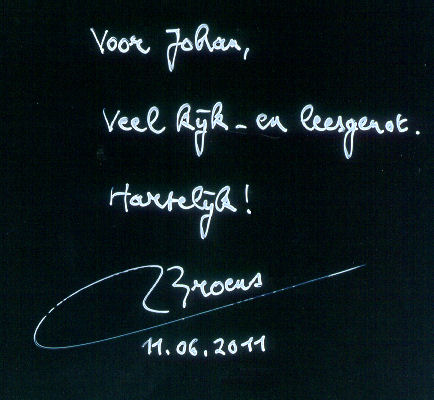 Voor Johan,
Veel kijk- en leesgenot.
Hartelijk!
Broens
11.06.2011